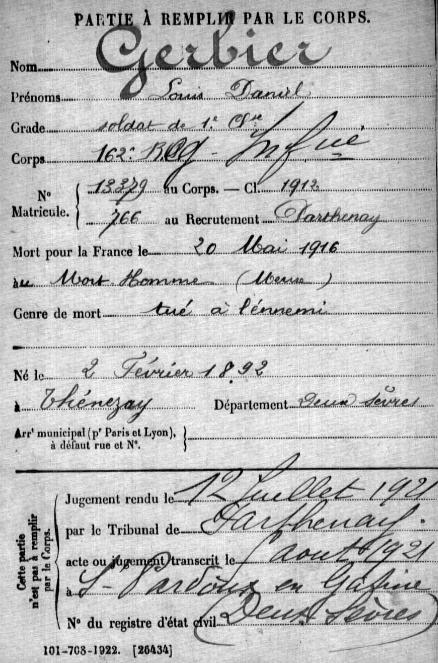 PARTIE À REMPLIR PAR LE CORPS.
Nom Gerbier
Prénoms Louis Daniel
Grade soldat de 1e Cle
Corps 162e Reg Infie
N° Matricule. { 13379 au Corps. — Cl. 1912
766 au Recrutement Parthenay
Mort pour la France le 20 Mai 1916
au Mort Homme (Meuse)
Genre de mort tué à l'énnemi
Né le 2 Février 1892
à Thénezay Département Deux Sèvres
Arrt municipal (pr Paris et Lyon), à défaut rue et N°.
Cette partie n'est pas à remplir par le Corps.
Jugement rendu le 12 Juillet 1921
par le Tribunal de Parthenay.
acte ou jugement transcrit le août 1921
à St Pardoux en Gatine
N° du registre d'état civil (Deux Sèvres)
101-708-1922. [26434]